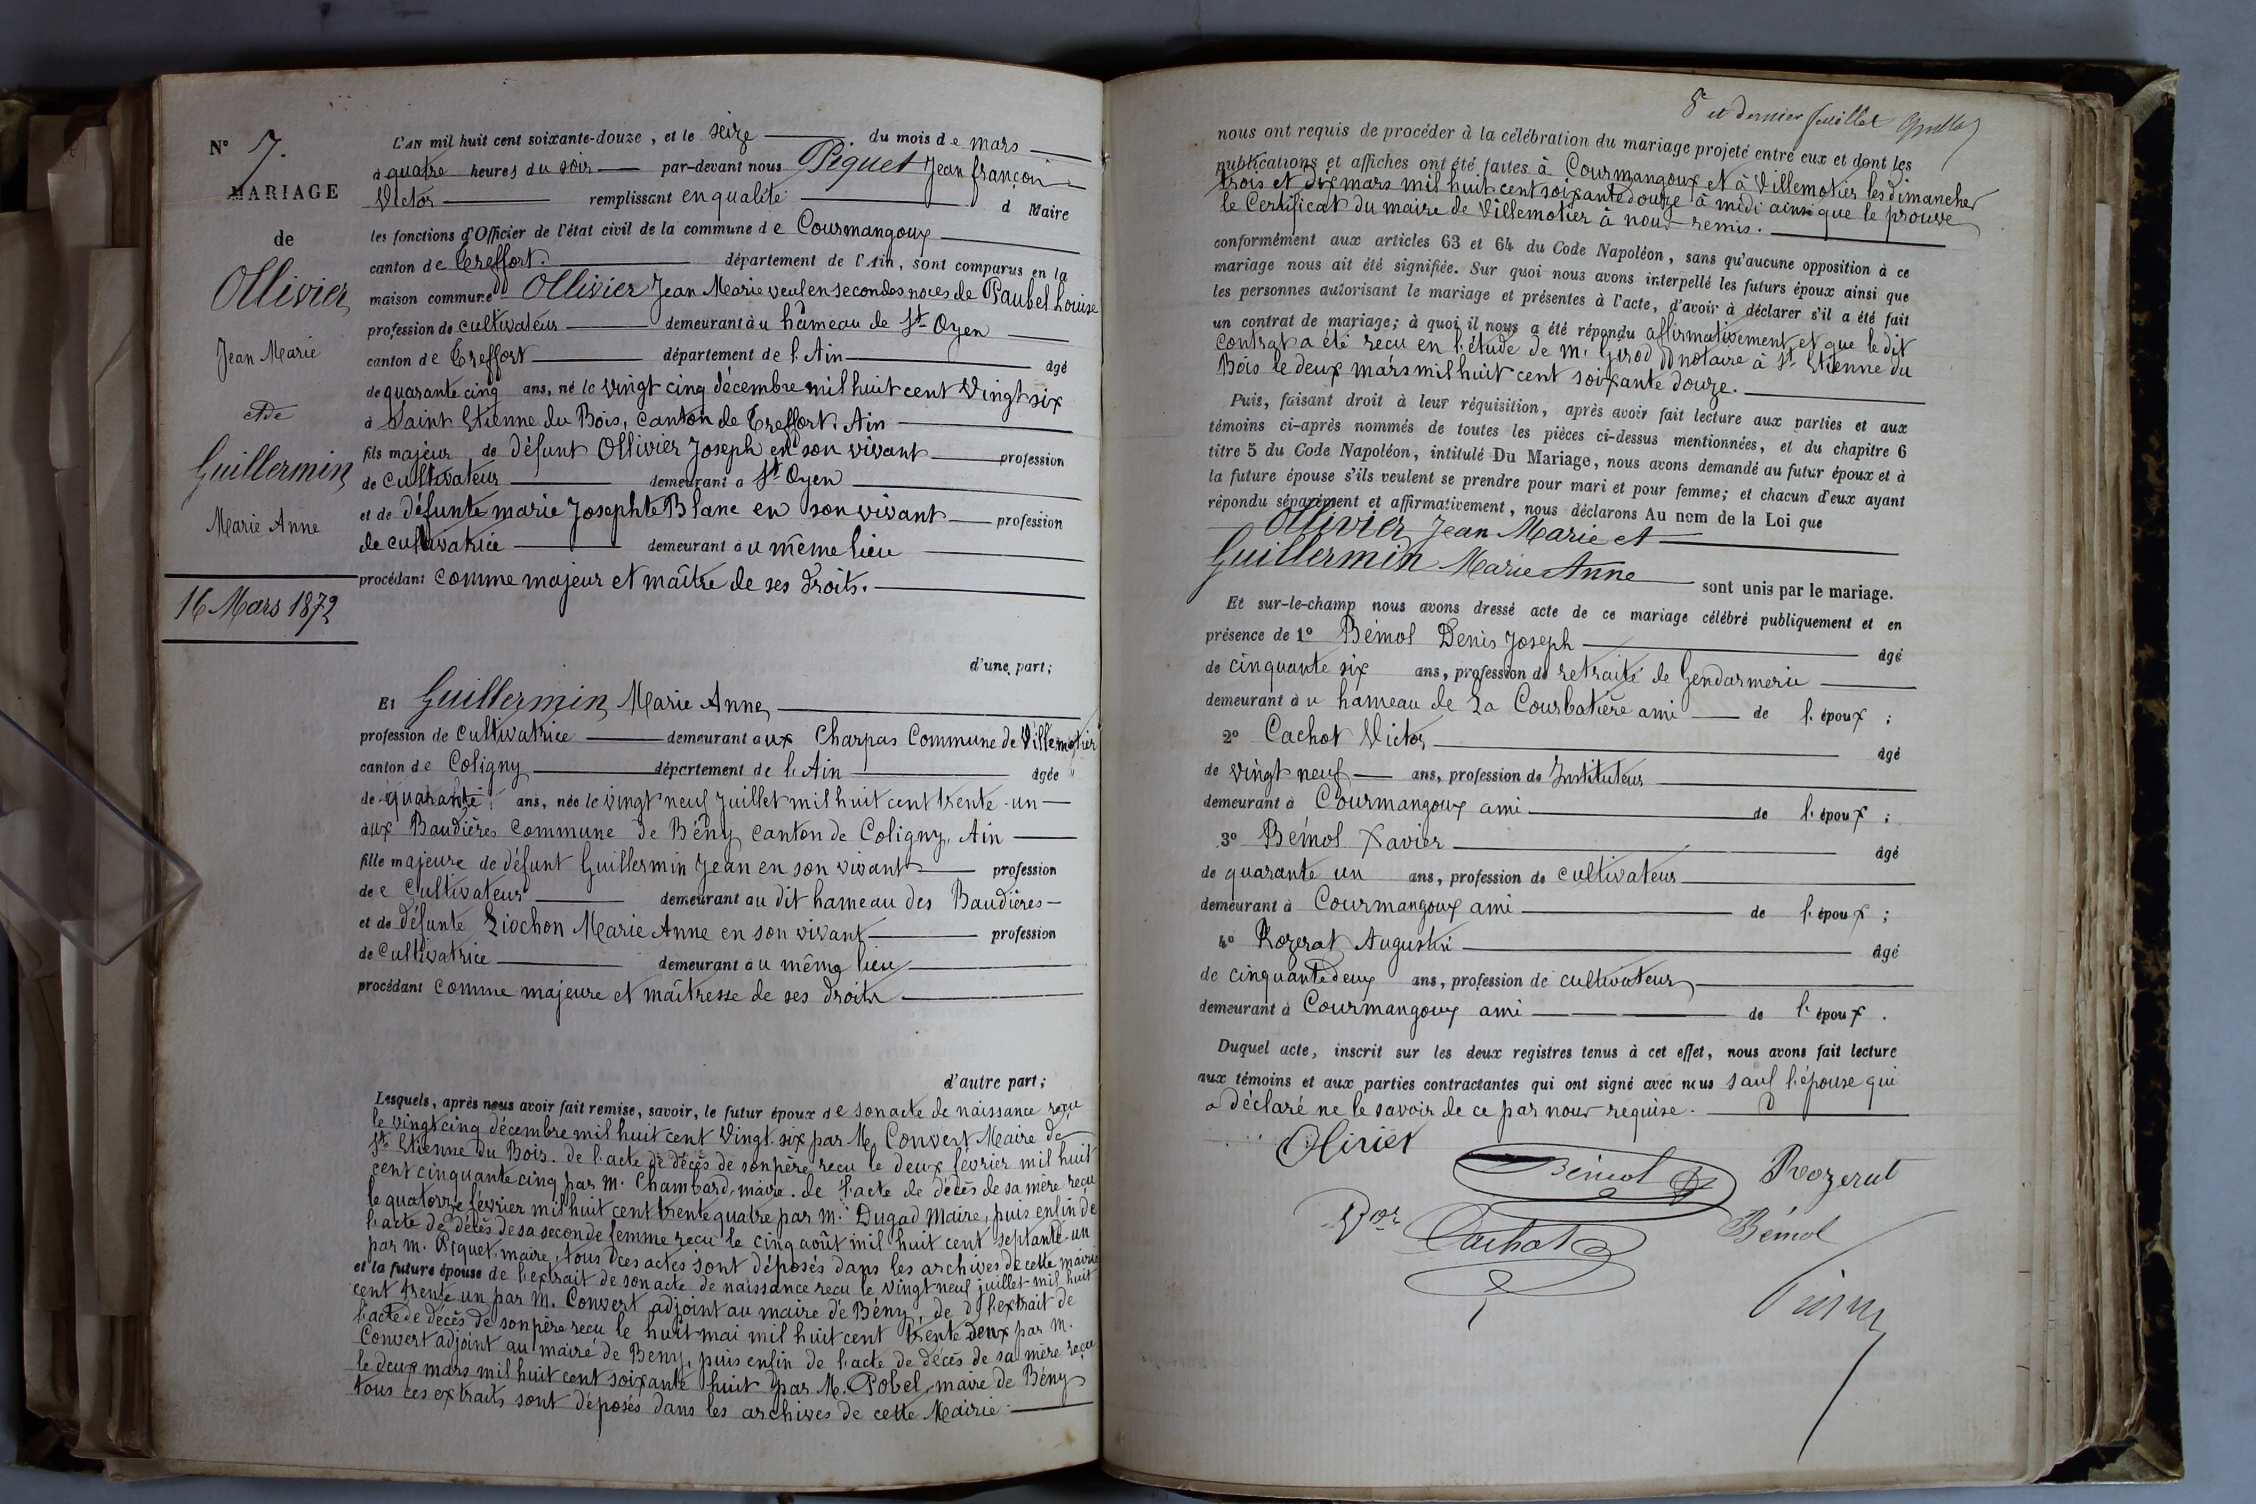 N° 7.
MARIAGE
de
Ollivier
Jean Marie
et de
Guillermin
Marie Anne
16 Mars 1872
L'AN mil huit cent soixante-douze, et le seize du mois de mars
à quatre heures du soir par-devant nous Piquet Jean françois
Victor remplissant en qualité d Maire
les fonctions d'Officier de l'état civil de la commune de Courmangoux
canton de Treffort. département de l'Ain, sont comparus en la
maison commune Ollivier Jean Marie veuf en secondes noces de Paubel Louise
profession de cultivateur demeurant au hameau de St Oyen
canton de Treffort département de l'Ain âgé
de quarante cinq ans, né le vingt cinq décembre mil huit cent vingt six
à Saint Etienne du Bois, canton de Treffort, Ain
fils majeur de défunt Ollivier Joseph en son vivant profession
de cultivateur demeurant a St Oyen
et de défunte marie Josephte Blanc en son vivant profession
de cultivatrice demeurant au même lieu
procédant comme majeur et maître de ses droits.
d'une part;
Et Guillermin Marie Anne
profession de cultivatrice demeurant aux Charpas Commune de Villemotier
canton de Coligny département de l'Ain âgée
de quarante ans, née le vingt neuf Juillet mil huit cent trente-un
aux Baudières commune de Bény canton de Coligny, Ain
fille majeure de défunt Guillermin Jean en son vivant profession
de e Cultivateur demeurant au dit hameau des Baudières
et de défunte Liochon Marie Anne en son vivant profession
de cultivatrice demeurant au même lieu
procédant comme majeure et maîtresse de ses droits
d'autre part;
Lesquels, après nous avoir fait remise, savoir, le futur époux de son acte de naissance reçu
le vingt cinq décembre mil huit cent vingt-six par M. Convert Maire de
St Etienne du Bois. de l'acte de décès de son père reçu le deux février mil huit
cent cinquante cinq par M. Chambard, maire. de l'acte de décès de sa mère reçu
le quatorze février mil huit cent trente quatre par M. Dugad Maire, puis enfin de
l'acte de décès de sa seconde femme reçu le cinq août mil huit cent septante-un
par M. Piquet, maire, tous ces actes sont déposés dans les archives de cette mairie
et la future épouse de l'extrait de son acte de naissance reçu le vingt neuf juillet mil huit
cent trente un par M. Convert adjoint au maire de Bény, de l'extrait de
l'acte de décès de son père reçu le huit mai mil huit cent trente deux par M.
Convert adjoint au maire de Beny, puis enfin de l'acte de décès de sa mère reçu
le deux mars mil huit cent soixante huit par M. Pobel, maire de Bény
tous ces extraits sont déposés dans les archives de cette Mairie.
5e et dernier feuillet
nous ont requis de procéder à la célébration du mariage projeté entre eux et dont les
publications et affiches ont été faites à Courmangoux et à Villemotier les dimanches
trois et dix mars mil huit cent soixante douze à midi ainsi que le prouve
le Certificat du maire de Villemotier à nous remis.
conformément aux articles 63 et 64 du Code Napoléon, sans qu'aucune opposition à ce
mariage nous ait été signifiée. Sur quoi nous avons interpellé les futurs époux ainsi que
les personnes autorisant le mariage et présentes à l'acte, d'avoir à déclarer s'il a été fait
un contrat de mariage; à quoi il nous a été répondu affirmativement et que le dit
contrat a été reçu en l'étude de M. Girod notaire à St Etienne du
Bois le deux mars mil huit cent soixante douze.
Puis, faisant droit à leur réquisition, après avoir fait lecture aux parties et aux
témoins ci-après nommés de toutes les pièces ci-dessus mentionnées, et du chapitre 6
titre 5 du Code Napoléon, intitulé Du Mariage, nous avons demandé au futur époux et à
la future épouse s'ils veulent se prendre pour mari et pour femme; et chacun d'eux ayant
répondu séparément et affirmativement, nous déclarons Au nom de la Loi que
Ollivier Jean Marie et
Guillermin Marie Anne sont unis par le mariage.
Et sur-le-champ nous avons dressé acte de ce mariage célébré publiquement et en
présence de 1° Bémol Denis Joseph âgé
de cinquante six ans, profession de retraité de Gendarmerie
demeurant au hameau de La Courbatière ami de l'époux;
2° Cachot Victor âgé
de vingt neuf ans, profession de Instituteur
demeurant à Courmangoux ami de l'époux;
3° Bémol Xavier âgé
de quarante un ans, profession de cultivateur
demeurant à Courmangoux ami de l'époux;
4° Rozerat Augustin âgé
de cinquante deux ans, profession de cultivateur
demeurant à Courmangoux ami de l'époux.
Duquel acte, inscrit sur les deux registres tenus à cet effet, nous avons fait lecture
aux témoins et aux parties contractantes qui ont signé avec nous sauf l'épouse qui
a déclaré ne le savoir de ce par nous requise.
Olivier
Bémol Rozerat
Cachot Bémol